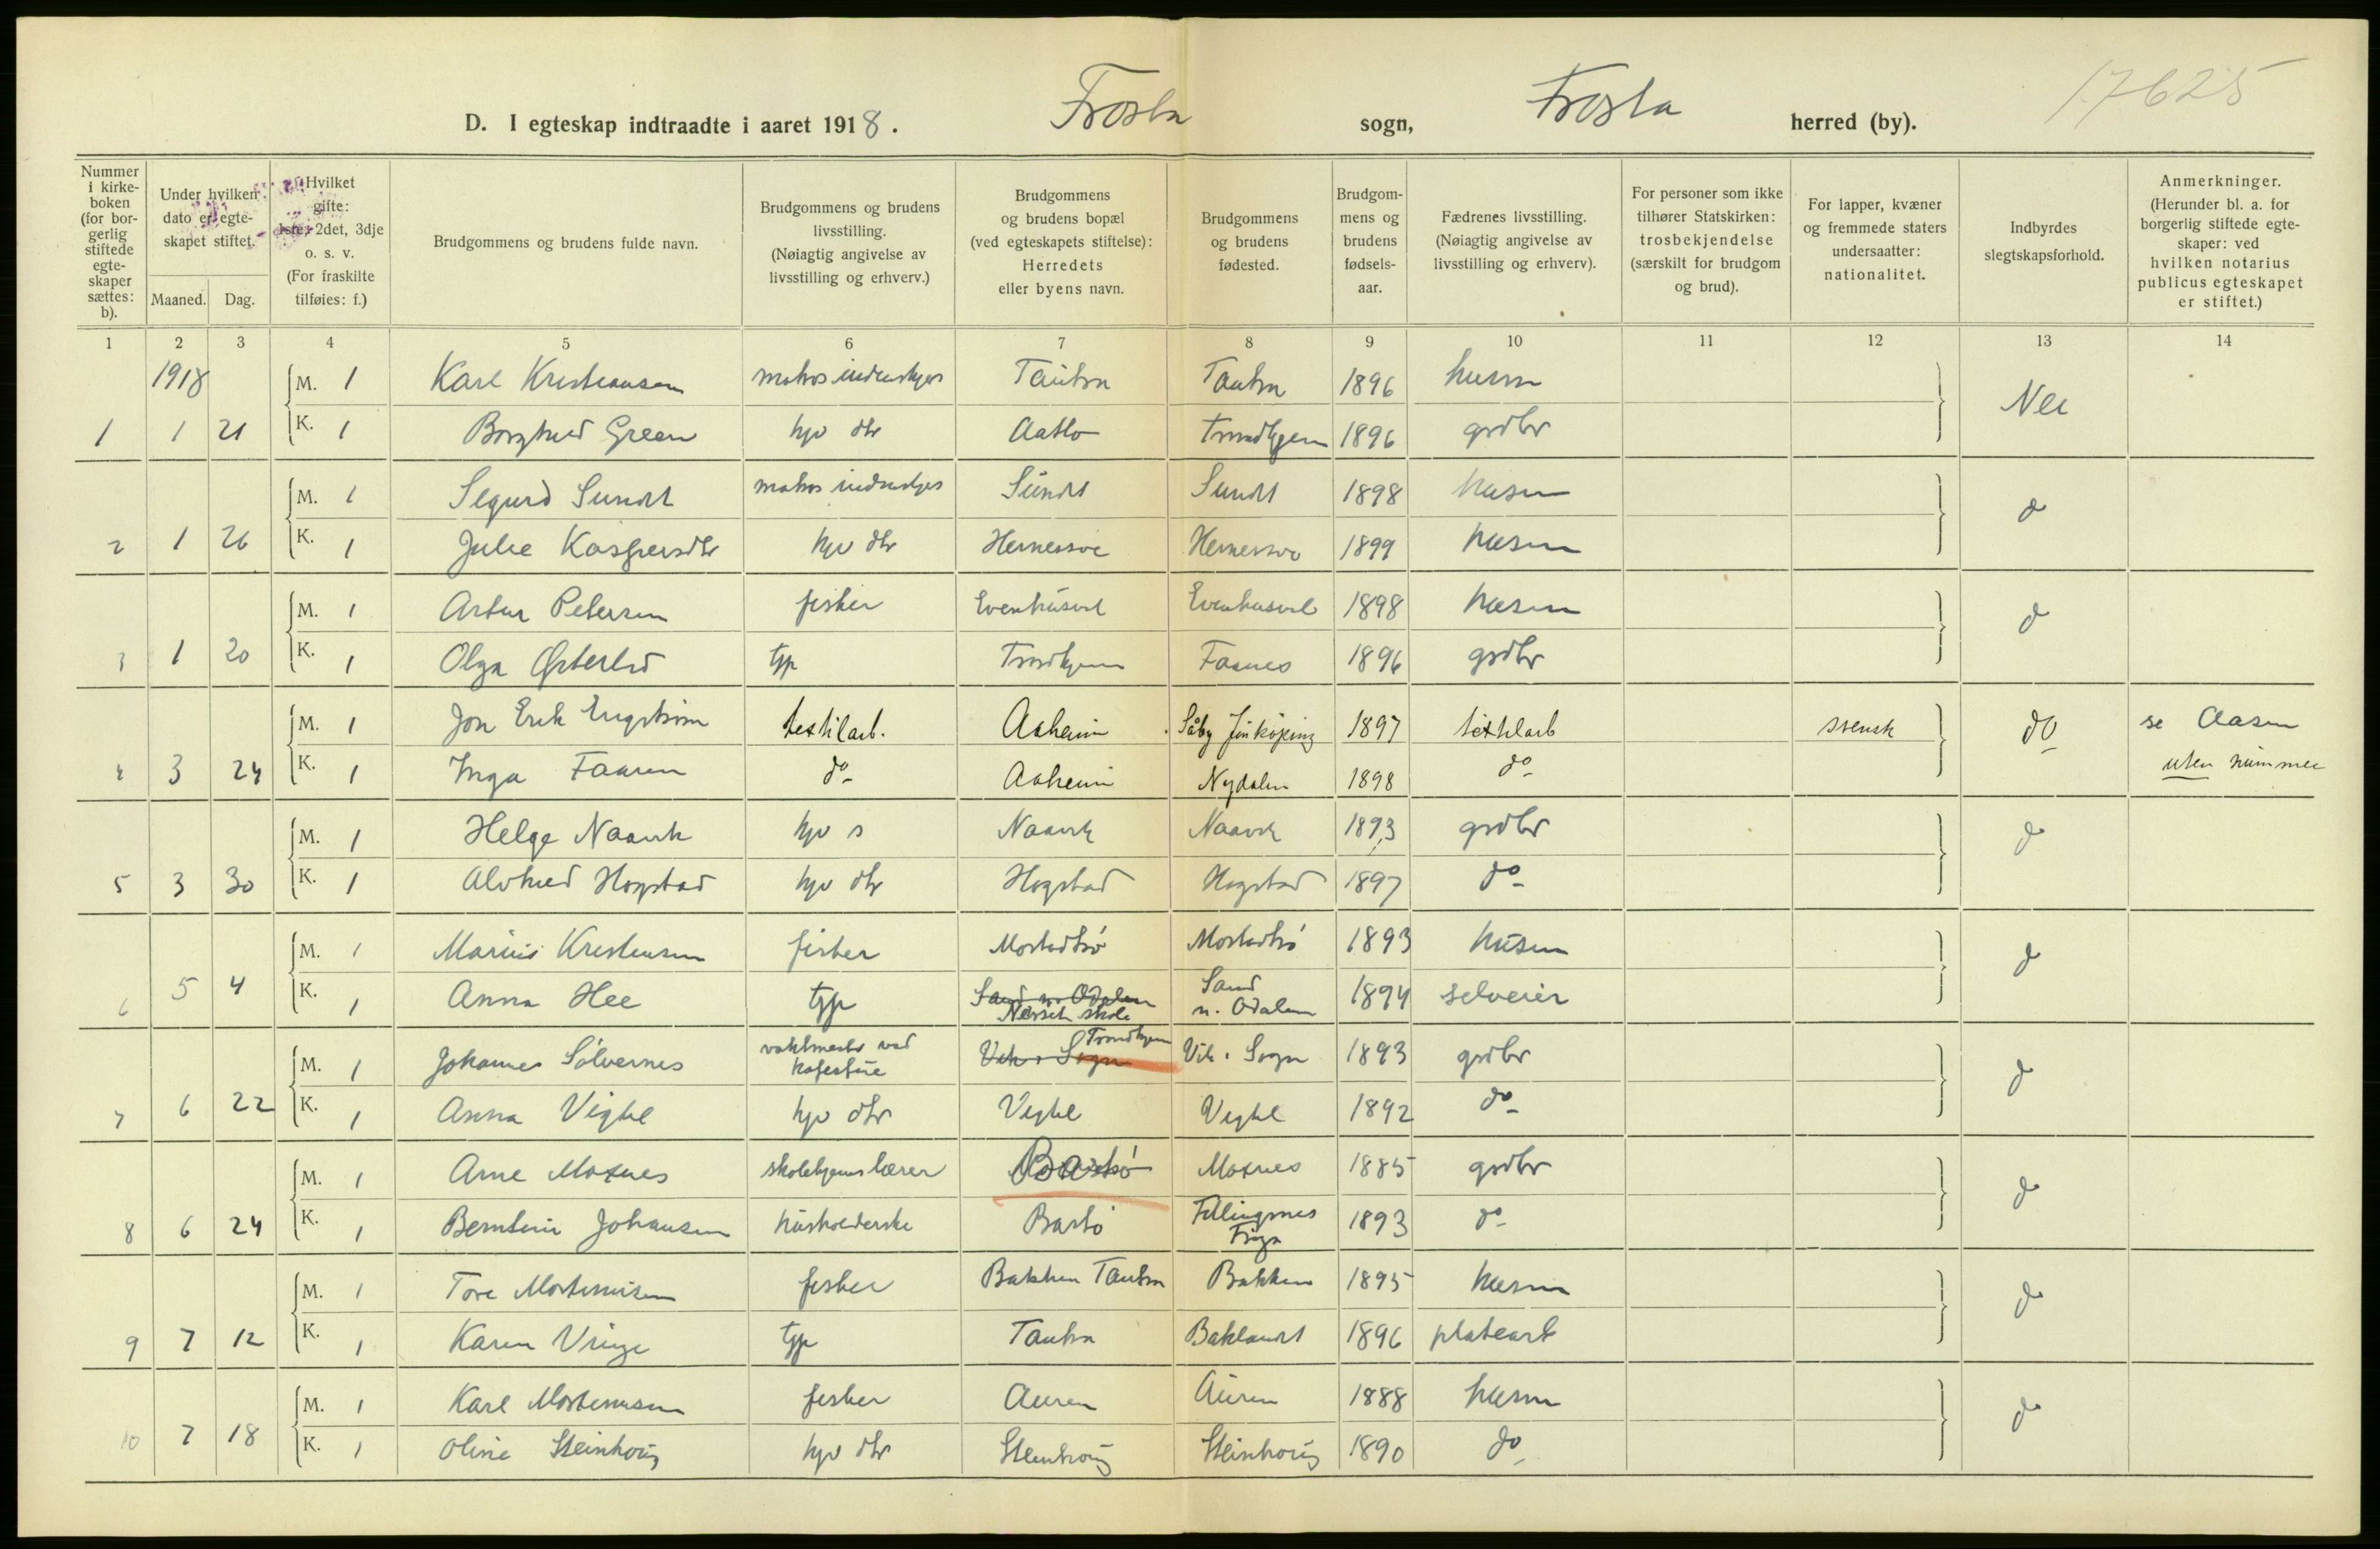 17625
D. I egteskap indtraadte i aaret 1918. Frosta sogn, Frosta herred (by).
Nummer i kirke-boken (for bor-gerlig stiftede egte-skaper sættes: b).
Under hvilken dato er egte-skapet stiftet.
Maaned. Dag.
Hvilket gifte: 1ste, 2det, 3dje o. s. v. (For fraskilte tilføies: f.)
Brudgommens og brudens fulde navn.
Brudgommens og brudens livsstilling. (Nøiagtig angivelse av livsstilling og erhverv.)
Brudgommens og brudens bopæl (ved egteskapets stiftelse): Herredets eller byens navn.
Brudgommens og brudens fødested.
Brudgom-mens og brudens fødsels-aar.
Fædrenes livsstilling. (Nøiagtig angivelse av livsstilling og erhverv).
For personer som ikke tilhører Statskirken: trosbekjendelse (særskilt for brudgom og brud).
For lapper, kvæner og fremmede staters undersaatter: nationalitet.
Indbyrdes slegtskapsforhold.
Anmerkninger. (Herunder bl. a. for borgerlig stiftede egte-skaper: ved hvilken notarius publicus egteskapet er stiftet.)
1 2 3 4 5 6 7 8 9 10 11 12 13 14
1918 M. 1 Karl Kristiansen Tautra Tautra 1896 husm
1 1 21 K. 1 Borghild Green hjv dtr Trondhjem 1896 grdbr Nei
M. 1 Sigurd Sundt Sundt Sundt 1898 husm
2 1 26 K. 1 Julie Kaspersdtr hjv dtr 1899 husm do
M. 1 Artur Petersen fisker Evenhusvl Evenhusvl 1898 husm
3 1 20 K. 1 Olga Østerlid tjp Trondhjem Faanes 1896 grdbr do
M. 1 Jon Erik Engström textilarb. Aaheim Såby Jönköping 1897 textilarb svensk do se Aasen
4 3 24 K. 1 Inga Faaren do Aaheim Nydalen 1898 do uten nummer
M. 1 Helge Naavik hjv s Naavik Naavik 1893 grdbr
5 3 30 K. 1 Alvhild Hogstad hjv dtr Hogstad Hogstad 1897 do do
M. 1 Marius Kristensen fisker Mostadtrø Mostadtrø 1893 husm
6 5 4 K. 1 Anna Hee tjp Sand n. Odalen Nessets skole Sand n. Odalen 1894 selveier do
M. 1 Johannes Sólvernes vaktmester ved Vik i Sogn Trondhjem Vik i Sogn 1893 grdbr
7 6 22 K. 1 Anna Vigtil hjv dtr Vigtil Vigtil 1892 do do
M. 1 Arne Moxnes skolehjemslærer Moxnes 1885 grdbr
8 6 24 K. 1 Berntine Johansen husholderske Barbo 1893 do do
M. 1 Tore Mortensen fisker Bakken Tautra Bakken 1895 husm
9 7 12 K. 1 Karen Vinge tjp Tautra Baklandt 1896 platearb do
M. 1 Karl Mortensen fisker Auren Auren 1888 husm
10 7 18 K. 1 Oline Steinhoug hjv dtr Steinhoug Steinhoug 1890 do do